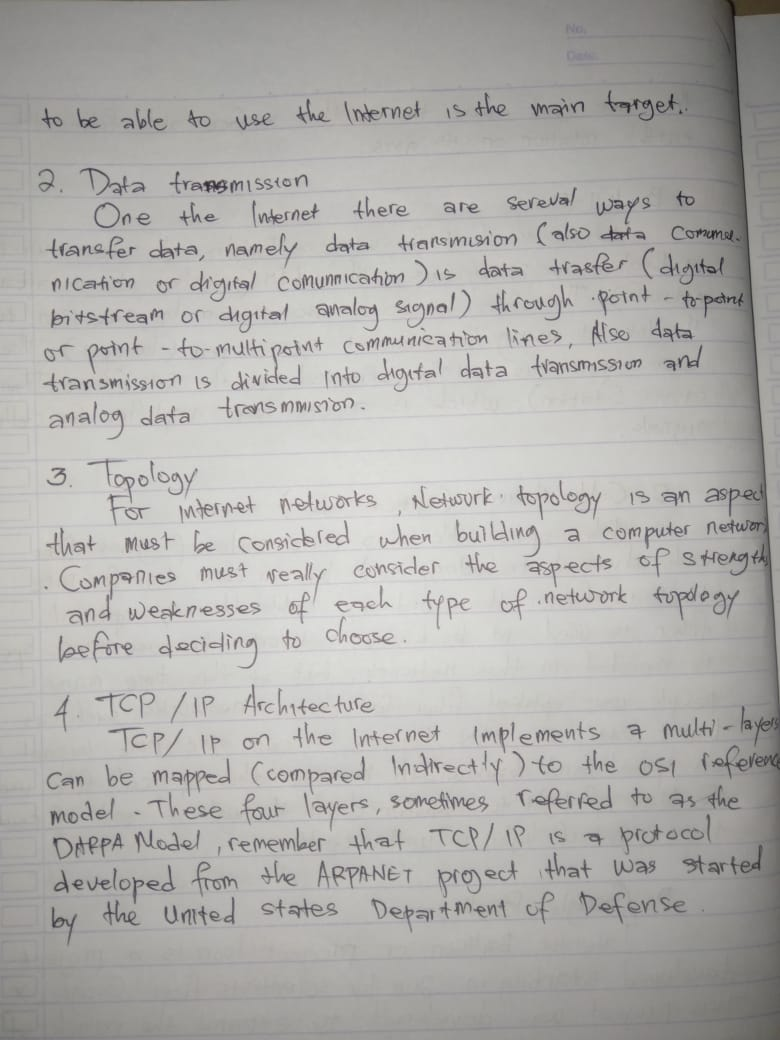 No.
Date.
to be able to use the Internet is the main target.
2. Data transmission
One the Internet there are sereval ways to
transfer data, namely data transmision (also data commu-
nication or digital comunnication) is data trasfer (digital
bitstream or digital analog signal) through point - to-point
or point - to-multipoint communication lines, Also data
transmission is divided into digital data transmission and
analog data transmmision.
3. Topology
For internet networks, Network topology is an aspec
that must be considered when building a computer networ
. Companies must really consider the aspects of strength
and weaknesses of each type of network topology
before deciding to choose.
4. TCP / IP Architecture
TCP/ IP on the Internet implements a multi-layers
can be mapped (compared Indirectly) to the OSI referenc
model. These four layers, sometimes referred to as the
DARPA Model, remember that TCP/ IP is a protocol
developed from the ARPANET project that was started
by the United states Department of Defense.